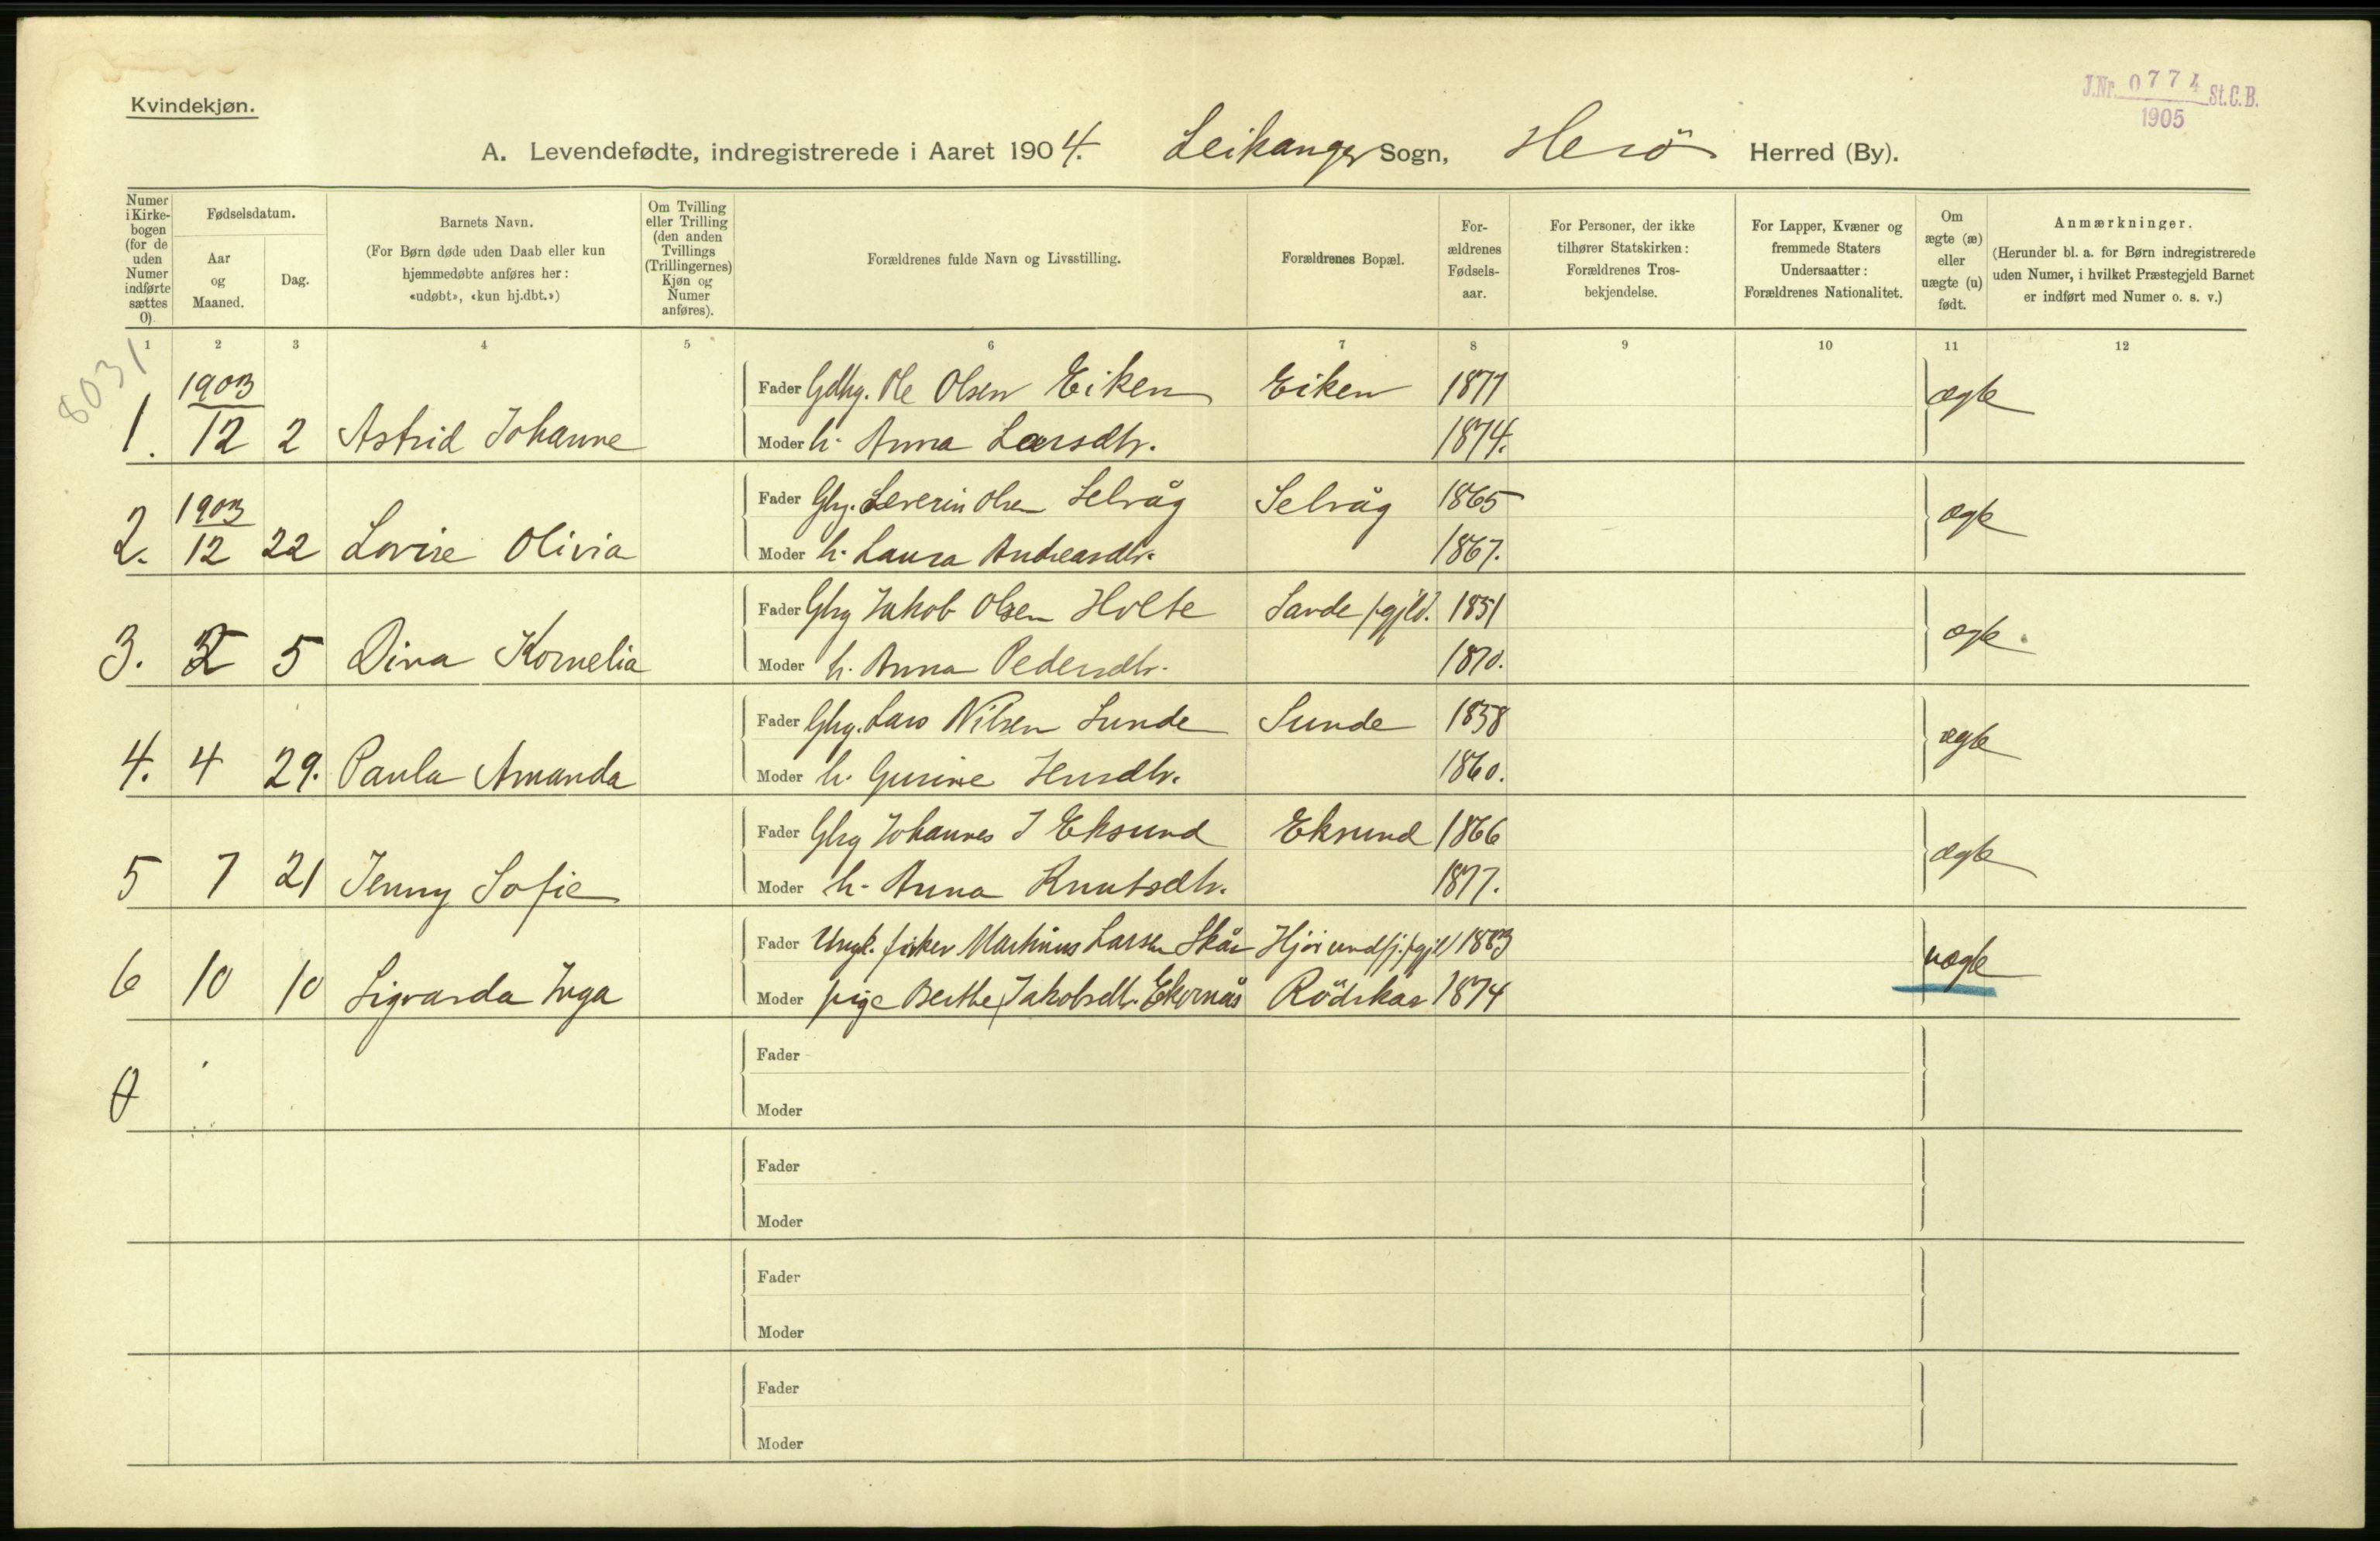 Kvindekjøn.
J.Nr. 0774 St.C.B.
1905
A. Levendefødte, indregistrerede i Aaret 1904. Leikanger Sogn, Herö Herred (By).
Numer i Kirkebogen (for de uden Numer indførte sættes 0).
Fødselsdatum.
Aar og Maaned.
Dag.
Barnets Navn.
(For Børn døde uden Daab eller kun hjemmedøbte anføres her: «udøbt», «kun hj.dbt.»)
Om Tvilling eller Trilling (den anden Tvillings (Trillingernes) Kjøn og Numer anføres).
Forældrenes fulde Navn og Livsstilling.
Forældrenes Bopæl.
Forældrenes Fødselsaar.
For Personer, der ikke tilhører Statskirken: Forældrenes Trosbekjendelse.
For Lapper, Kvæner og fremmede Staters Undersaatter: Forældrenes Nationalitet.
Om ægte (æ) eller uægte (u) født.
Anmærkninger.
(Herunder bl. a. for Børn indregistrerede uden Numer, i hvilket Præstegjeld Barnet er indført med Numer o. s. v.)
1 2 3 4 5 6 7 8 9 10 11 12
8031
1903 Fader Gdbg. Ole Olsen Eiken Eiken 1877 ægte
1. 12 2 Astrid Johanne Moder h. Anna Larsdtr. 1874.
1903 Fader Gbg. Severin Olsen Selvåg Selvåg 1865 ægte
2. 12 22 Lovise Olivia Moder h. Laura Andreasdtr. 1867.
Fader Gbg Jakob Olsen Holte Sande pgjld. 1851 ægte
3. 5 Dina Kornelia Moder h. Anna Pedersdtr. 1870.
Fader Gbg. Lars Nilsen Sunde Sunde 1858 ægte
4. 4 29. Paula Amanda Moder h. Gurine Jensdtr. 1860.
Fader Gbg Johannes J Eksund Eksund 1866 ægte
5 7 21 Jenny Sofie Moder h. Anna Knutsdtr. 1877.
Fader Ungk. fisker Martinus Larsen Skår Hjörundfj. pgjld 1883 uægte
6 10 10 Sigvarda Inga Moder pige Berthe Jakobsdtr. Ekornås Rödskar 1874
Fader
0 Moder
Fader
Moder
Fader
Moder
Fader
Moder